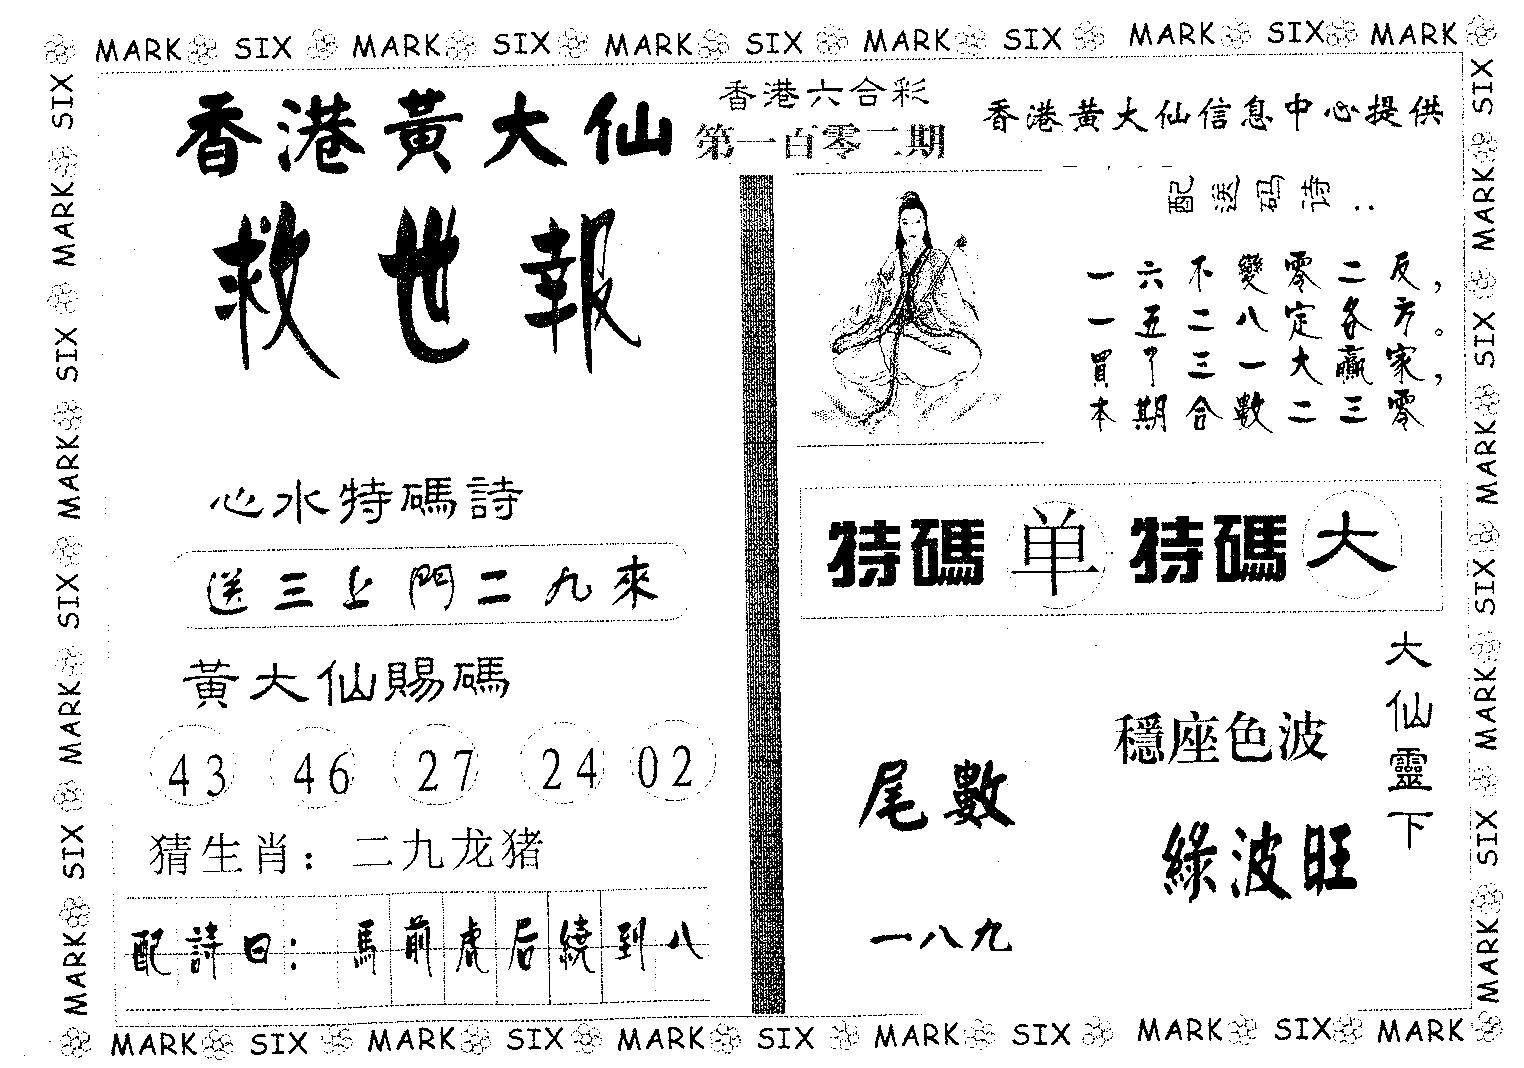 MARK SIX MARK SIX MARK SIX MARK SIX MARK SIX MARK
香港黃大仙
救世報
香港六合彩
第一百零二期
香港黃大仙信息中心提供
配送码诗：
一六不變零二反，
一五二八定各方。
買了三一大贏家，
本期合數二三零
心水特碼詩
送三上門二九來
黃大仙賜碼
43 46 27 24 02
猜生肖：二九龙猪
配詩曰：馬前虎后繞到八
特碼单 特碼大
大仙靈下
穩座色波
綠波旺
尾數
一八九
MARK SIX MARK SIX MARK SIX MARK SIX MARK SIX MARK
MARK SIX MARK SIX MARK SIX MARK SIX
MARK SIX MARK SIX MARK SIX MARK SIX